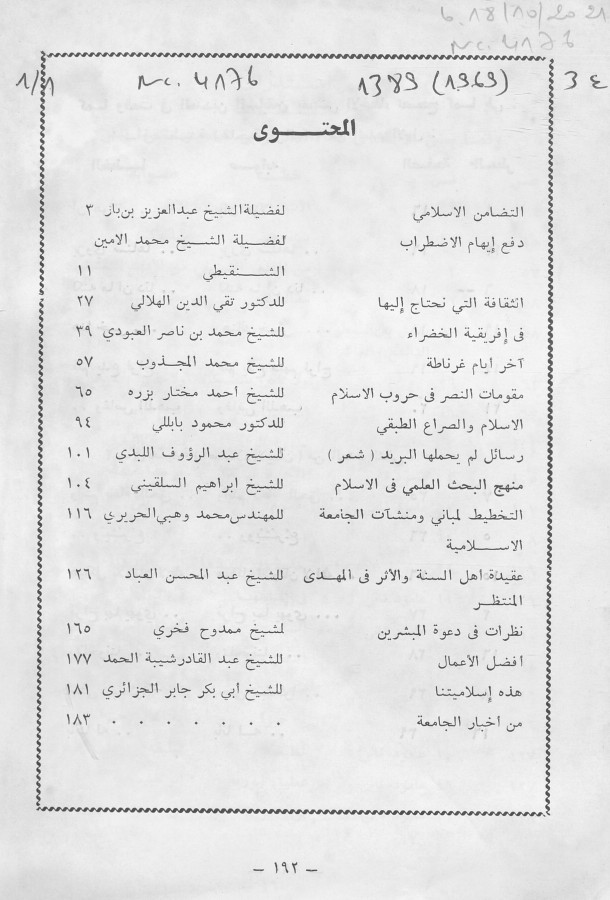 6.18/10/2021
Nc. 4176
1/1 Nc. 4176 1389 (1969) 3 ٤
المحتــوى
التضامن الاسلامي لفضيلة الشيخ عبدالعزيز بن باز ٣
دفع إيهام الاضطراب لفضيلة الشيخ محمد الامين
الشنقيطي ١١
الثقافة التي نحتاج إليها للدكتور تقي الدين الهلالي ٢٧
فى إفريقية الخضراء للشيخ محمد بن ناصر العبودي ٣٩
آخر أيام غرناطة للشيخ محمد المجذوب ٥٧
مقومات النصر فى حروب الاسلام للشيخ أحمد مختار بزره ٦٥
الاسلام والصراع الطبقي للدكتور محمود بابللي ٩٤
رسائل لم يحملها البريد ( شعر ) للشيخ عبد الرؤوف اللبدي ١٠١
منهج البحث العلمي فى الاسلام للشيخ ابراهيم السلقيني ١٠٤
التخطيط لمباني ومنشآت الجامعة للمهندس محمد وهبي الحريري ١١٦
الاسـلامية
عقيدة اهل السنة والأثر فى المهدى للشيخ عبد المحسن العباد ١٢٦
المنتظـر
نظرات فى دعوة المبشرين لشيخ ممدوح فخري ١٦٥
أفضل الأعمال للشيخ عبد القادر شيبة الحمد ١٧٧
هذه إسلاميتنا للشيخ أبي بكر جابر الجزائري ١٨١
من أخبار الجامعة . . . . . . . ١٨٣
– ١٩٢ –